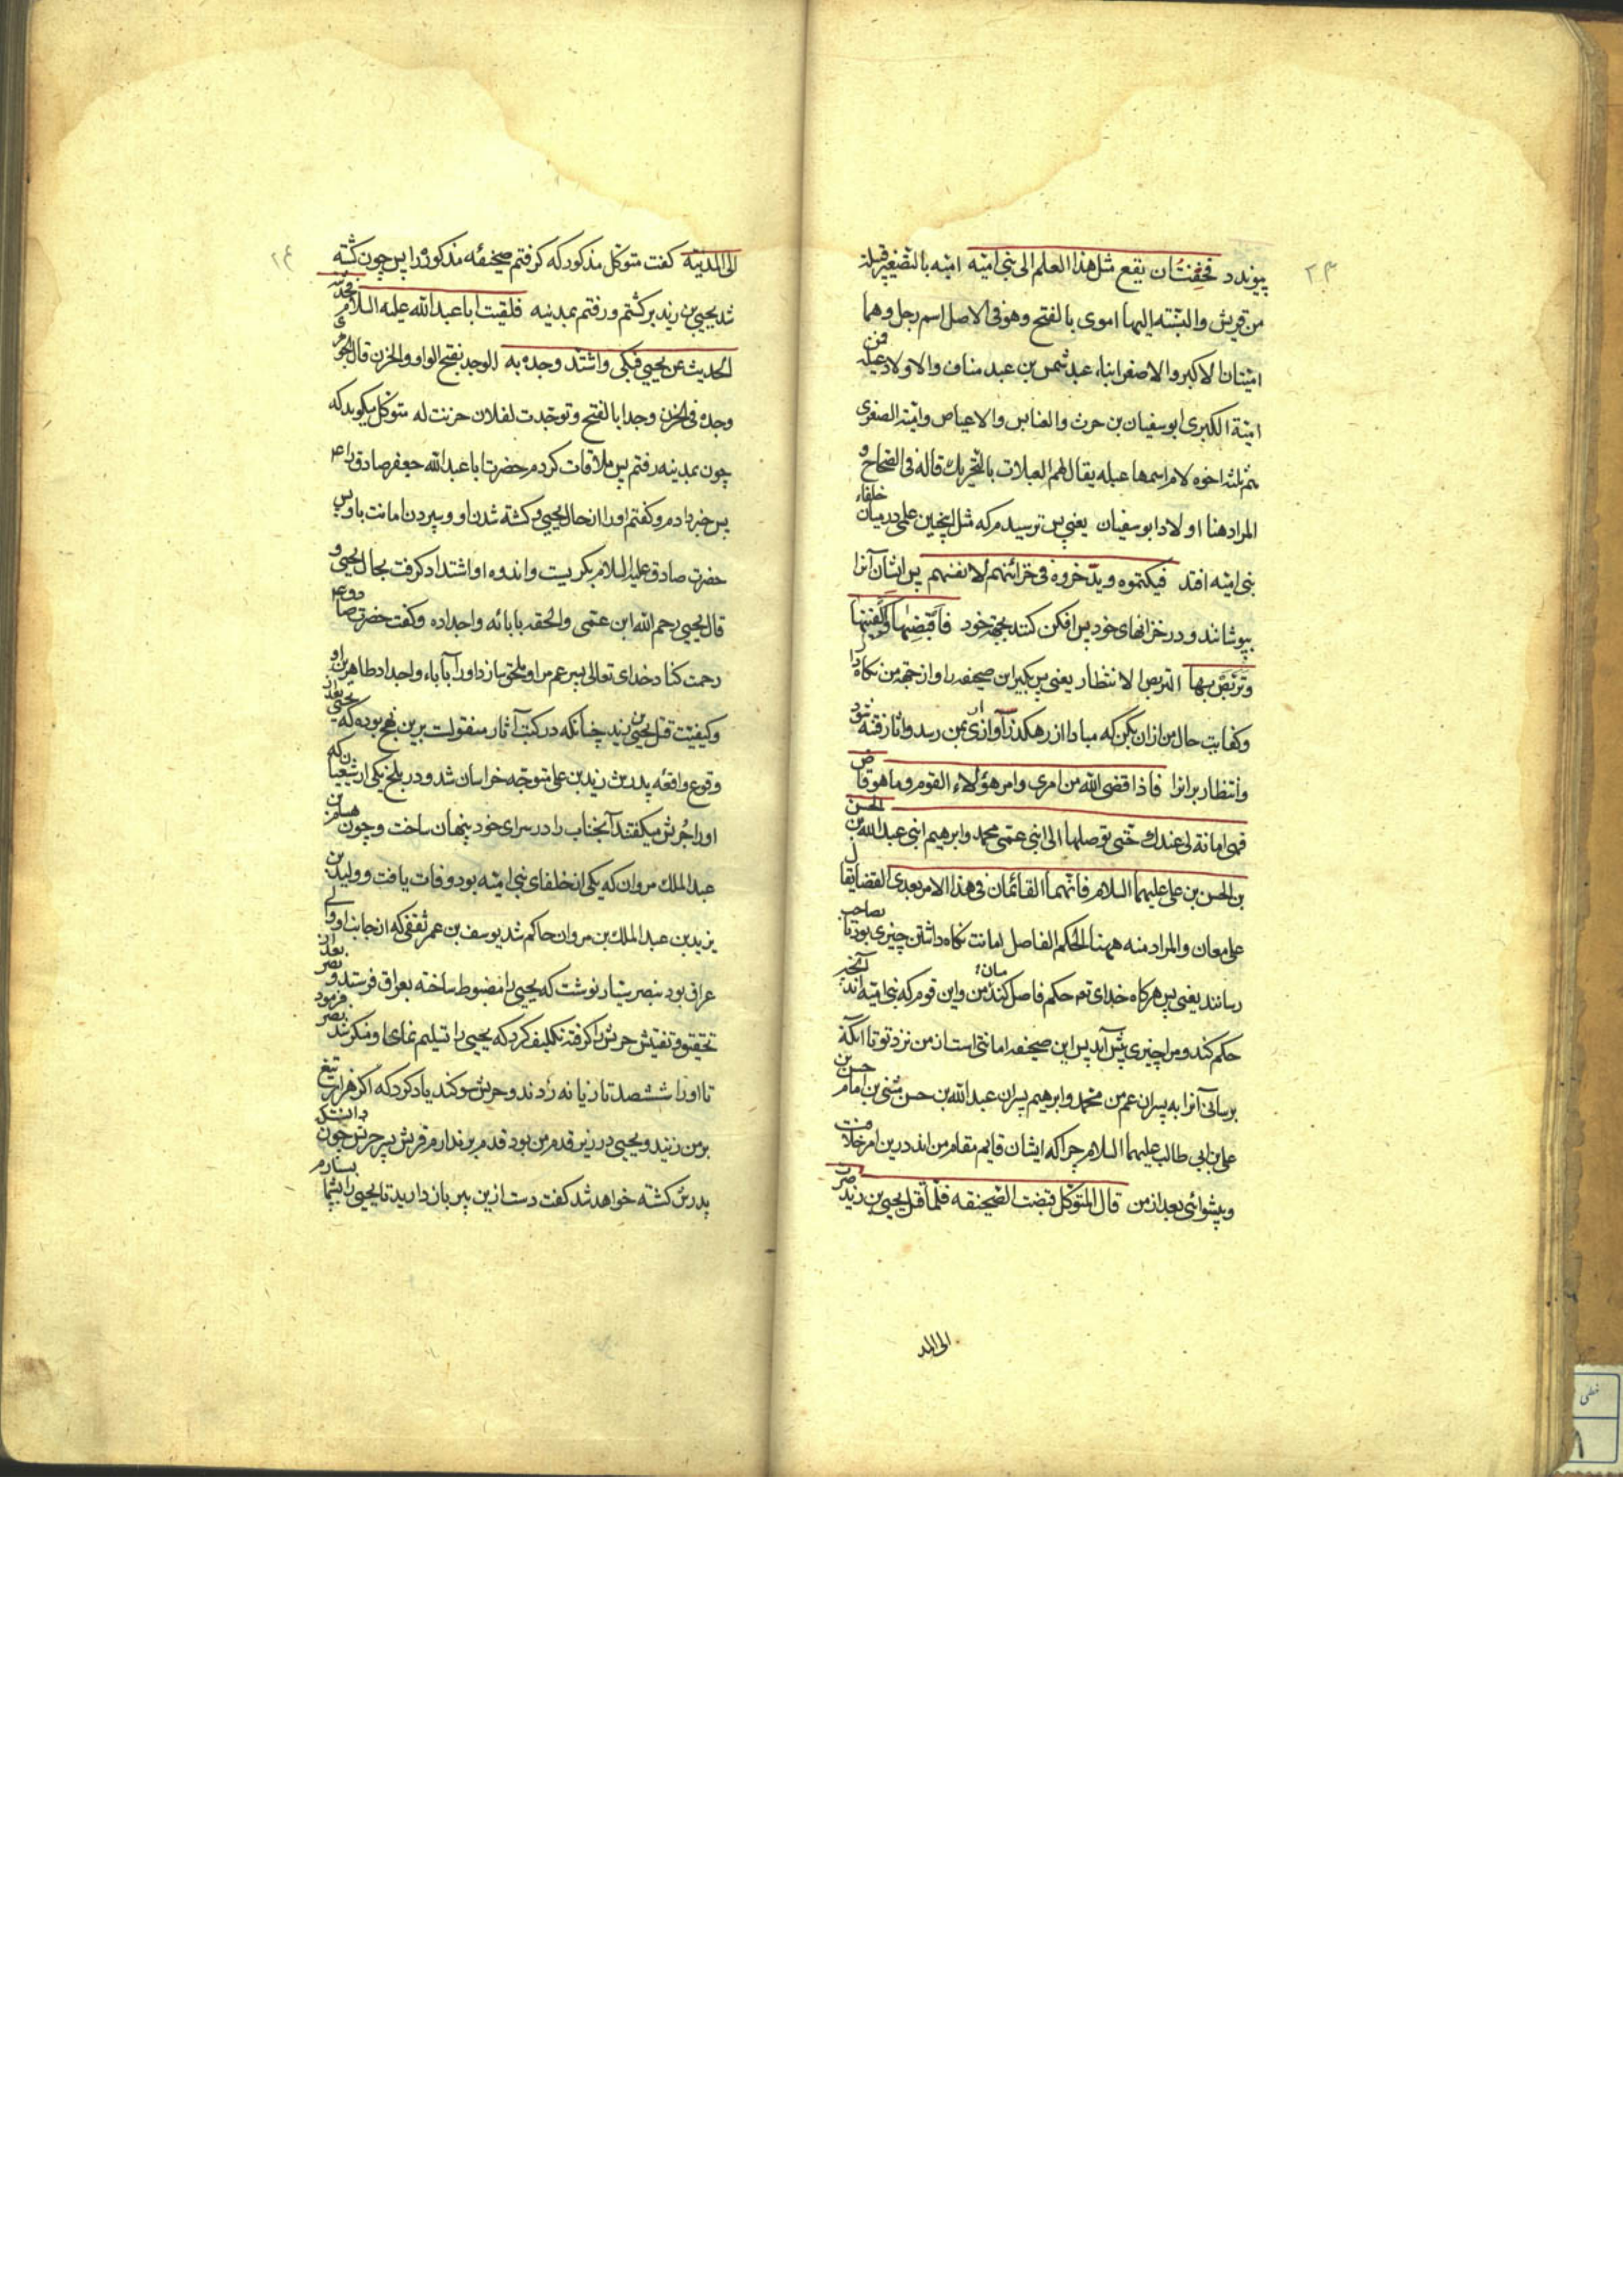 ۲۳
پیوندد فخفت ان یقع مثل هذا العلم الی بنی امیّه امیّه بالتصغیر قبیلة
من قریش والنسبته الیها اموی بالفتح وهو فی الاصل اسم رجل وهما
امیّتان الاکبر والاصغر ابناء عبد شمس بن عبد مناف والاولاد عبله فمن
امیّة الکبری ابوسفیان بن حرث والعنابس والاعیاص وامیّة الصغری
هم ثلثة اخوه لام اسمها عبله یقال لهم العبلات بالتحریک قاله فی الصّحاح و
المراد هنا اولاد ابوسفیان یعنی پس ترسیدم که مثل اینچنین علمی درمیان خلفاء
بنی امیّه افتد فیکتموه ویدّخروه فی خزائنهم لانفسهم پس ایشان آنرا
بپوشانند و در خزانهای خود پس افکن کنند بجهة خود فاقبضها واکفنیها
وتربّص بها التربص الانتظار یعنی پس بگیر این صحیفه را و از جهة من نگاه دار
وکفایت حال من ازان بکن که مبادا از رهکذر آن آوازی بمن رسد و اثار فتنه شود
وانتظار بر انرا فاذا قضی الله من امری وامر هؤلاء القوم وما هو قاض
فهی امانة لی عندک حتّی توصلها الی ابنی عمّی محمد وابرهیم ابنی عبد الله بن الحسن
بن الحسن بن علی علیهما السلام فانّهما القائمان فی هذا الامر بعدی القضا یقال
علی معان والمراد منه ههنا الحکم الفاصل امانت نگاه داشتن چیزی بود تا بصاحب
رسانند یعنی پس هرگاه خدای تع حکم فاصل کند میان من و این قوم که بنی امیّه اند آنچه
حکم کند و مرا چیزی پیش آید پس این صحیفه امانتی است از من نزد تو تا انکه
برسانی آنرا به پسران عم من محمد و ابرهیم پسران عبد الله بن حسن مثنی بن امام حسن بن
علی بن ابی طالب علیهما السلام چرا که ایشان قایم مقام من اند درین امر خلافت
و پیشوائی بعد از من قال المتوکل فقبضت الصّحیفه فلمّا قتل یحیی بن زید صرت
الی المد
۲۴
الی المدینة گفت متوکل مذکور که گرفتم صحیفه مذکوره را پس چون کشته
شد یحیی بن زید برگشتم و رفتم بمدینه فلقیت ابا عبد الله علیه السلام فحدّثته
الحدیث عن یحیی فبکی واشتدّ وجده به الوجد بفتح الواو والحزن قال الجوهری
وجد فی الحزن وجدا بالفتح وتوجّدت لفلان حزنت له متوکل میکوید که
چون بمدینه رفتم پس ملاقات کردم حضرت ابا عبد الله جعفر صادق را ع
پس خبر دادم و کفتم او را از حال یحیی و کشته شدن او و سپردن امانت باو پس
حضرت صادق علیه السلام بگریست و اندوه او اشتداد گرفت بحال یحیی و
قال یحیی رحم الله ابن عمّی والحقه بابائه واجداده و کفت حضرت صادق ع
رحمت کناد خدای تعالی پسر عم مرا و ملحق سازد او را بآباء و اجداد طاهرین او
و کیفیّت قتل یحیی بن زید چنانکه در کتب آثار منقولست برین نهج بوده که یحیی بعد از
وقوع واقعهٔ پدرش زید بن علی متوجه خراسان شد و در بلخ یکی از شیعیان که
او را حرش میکفتند آنجناب را در سرای خود پنهان ساخت و چون هشام بن
عبد الملک مروان که یکی از خلفای بنی امیّه بود وفات یافت و ولید بن
یزید بن عبد الملک بن مروان حاکم شد یوسف بن عمر ثقفی که از جانب او والی
عراق بود بنصر سیّار نوشت که یحیی را مضبوط ساخته بعراق فرستد و نصر بعد از
تحقیق و تفتیش حرش را گرفته تکلیف کرد که یحیی را تسلیم نمای او منکر شد نصر فرمود
تا او را ششصد تازیانه زدند و حرش سوکند یاد کرد که اگر هزار تیغ
بر من زنید و یحیی در زیر قدم من بود قدم بر ندارم قریش پسر حرش چون دانست که
پدرش کشته خواهد شد کفت دست ازین پیر باز دارید تا یحیی را بشما بسپارم
خطی